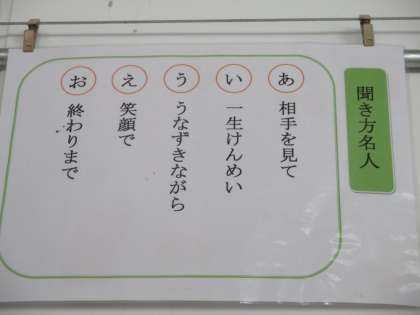 聞き方名人
あ 相手を見て
い 一生けんめい
う うなずきながら
え 笑顔で
お 終わりまで